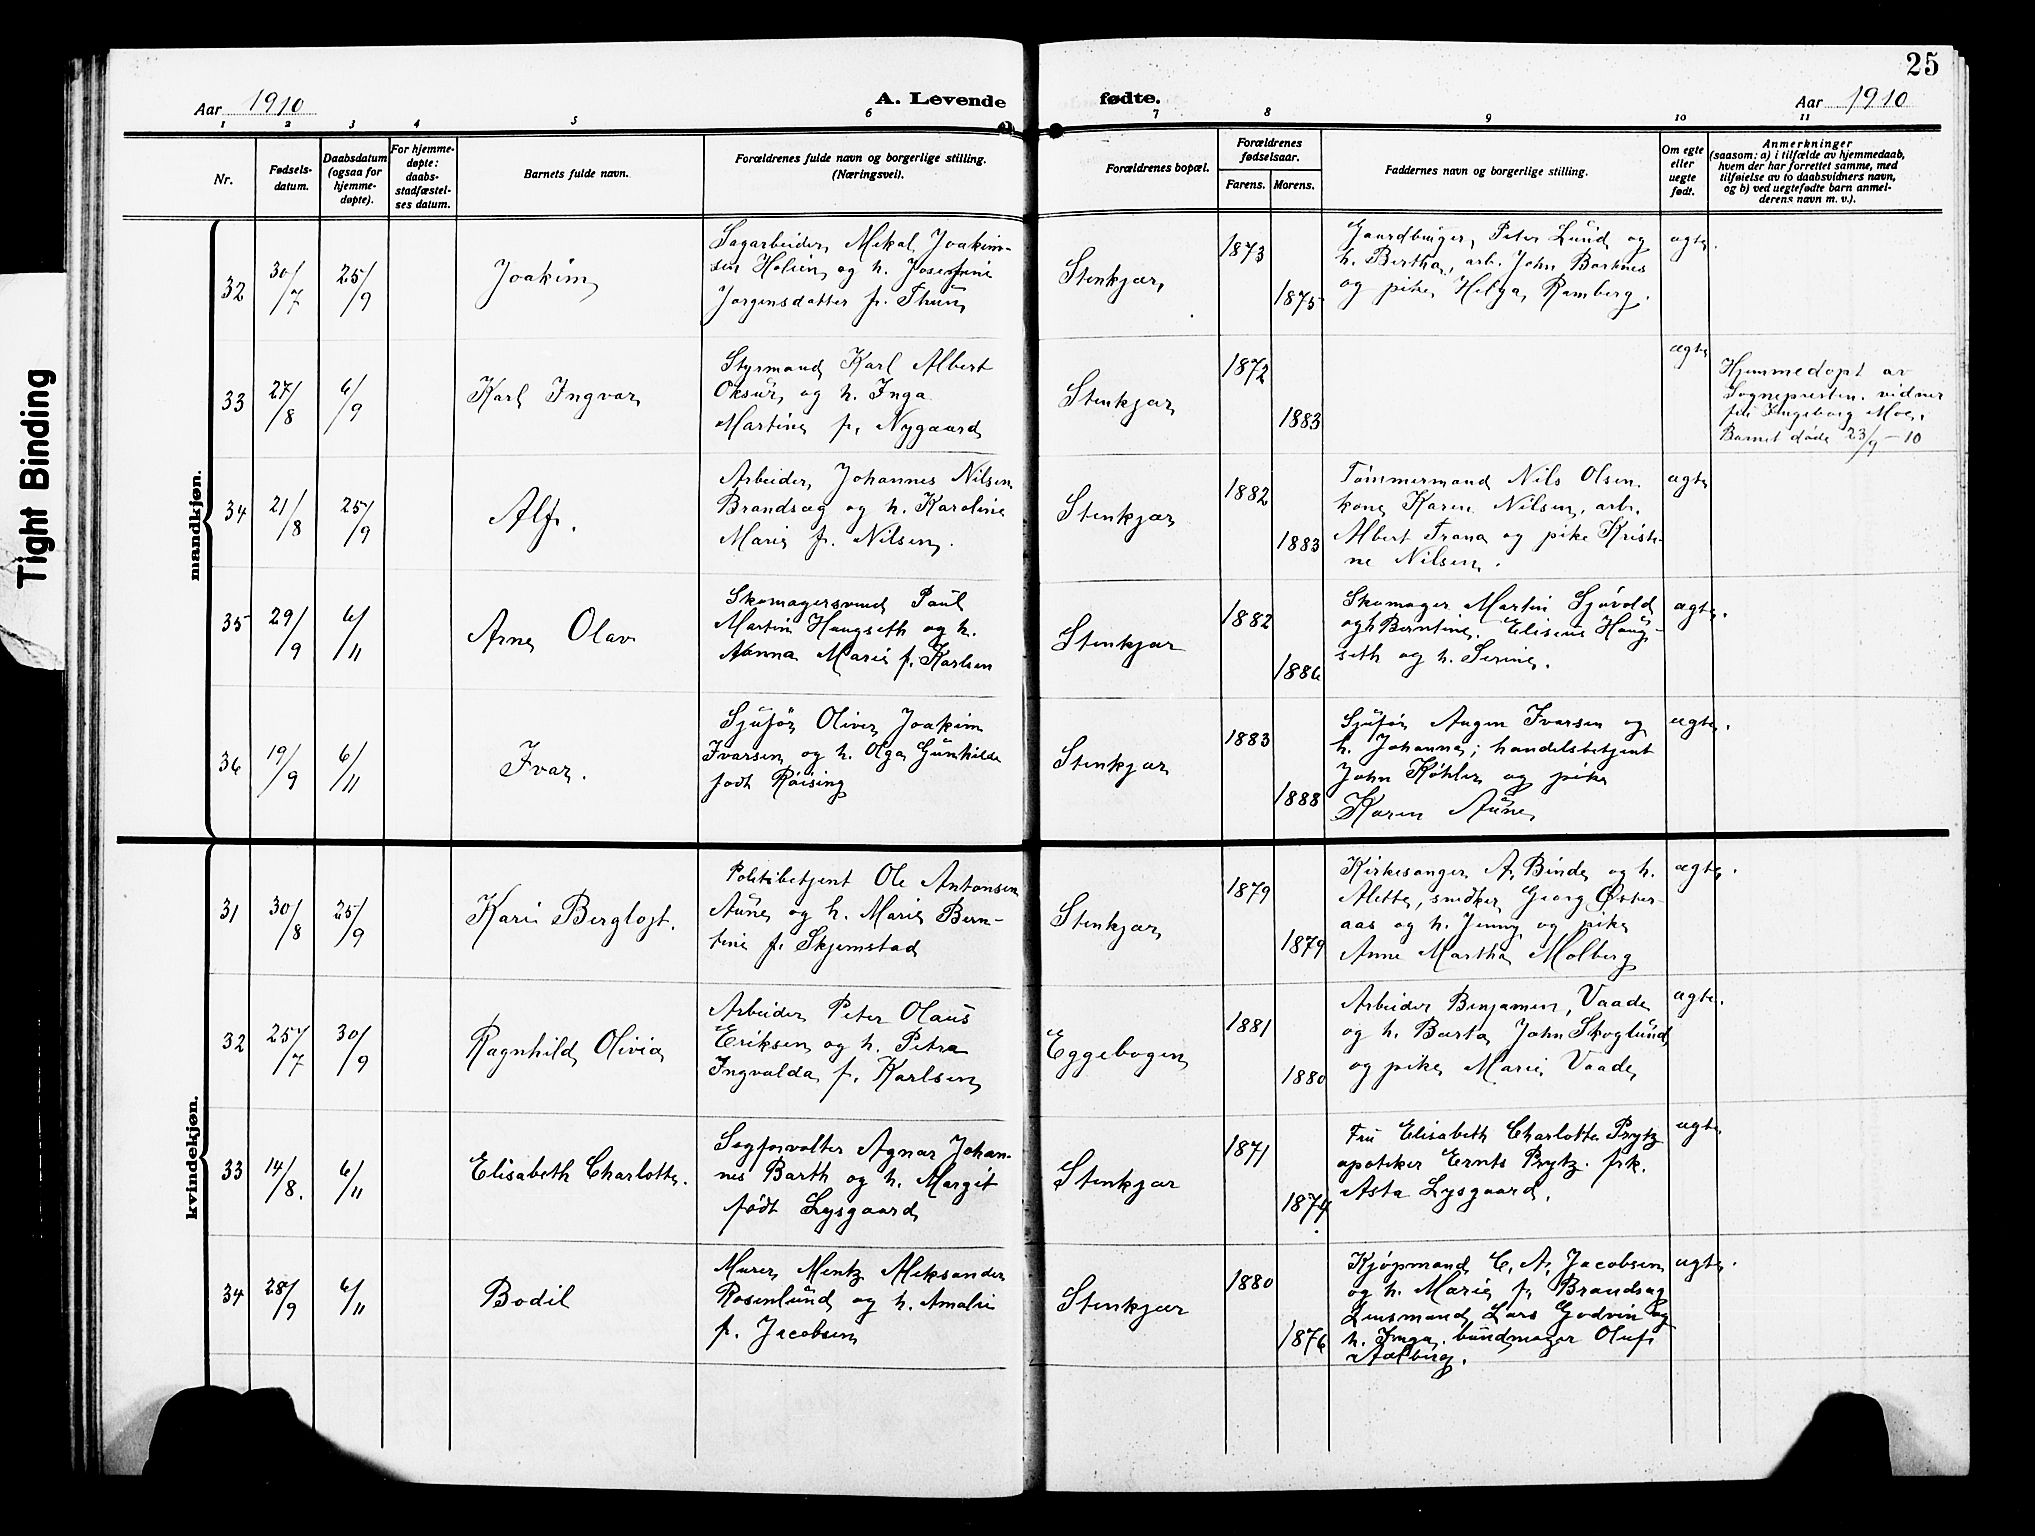 25
Aar 1910
A. Levende fødte.
Aar 1910
1 2 3 4 5 6 7 8 9 10 11
Nr.
Fødsels-
datum.
Daabsdatum
(ogsaa for
hjemme-
døpte).
For hjemme-
døpte:
daabs-
stadfæstel-
ses datum.
Barnets fulde navn.
Forældrenes fulde navn og borgerlige stilling.
(Næringsvei).
Forældrenes bopæl.
Forældrenes
fødselsaar.
Farens. Morens.
Faddernes navn og borgerlige stilling.
Om egte
eller
uegte
født.
Anmerkninger
(saasom: a) i tilfælde av hjemmedaab,
hvem der har forrettet samme, med
tilføielse av to daabsvidners navn,
og b) ved uegtefødte barn anmel-
derens navn m. v.).
Tight Binding
mandkjøn.
32
30/7
25/9
Joakim
Sagarbeider Mikal Joakim-
sen Holien og h. Josefine
Jørgensdatter f. Thun
Stenkjær
1873
1875
Gaardbruger Peter Lund og
h. Bertha, arb. John Bartnes
og pike Helga Ramberg.
ægte.
33
27/8
6/9
Karl Ingvar
Styrmand Karl Albert
og h. Inga
Martine f. Nygaard
Stenkjær
1872
1883
ægte
Hjemmedøpt av
Sognepresten. vidner
Ingeborg Moe.
Barnet døde 23/9-10
34
21/8
25/9
Alf.
Arbeider Johannes Nilsen
Brandsæg og h. Karoline
Marie f. Nilsen.
Stenkjær
1882
1883
Tømmermand Nils Olsen.
kone Karen Nilsen, arb.
Albert Trana og pike Kristi-
ne Nilsen.
ægte
35
29/9
6/11
Arne Olav
Skomagersvend Paul
Martin Haugseth og h.
Anna Marie f. Karlsen
Stenkjær
1882
1886
Skomager Martin Sjøvold
og h Berntine. Eliseus Haug-
seth og h. Serine.
ægte.
36
19/9
6/11
Ivar.
Sjøfør Oliver Joakim
Ivarsen og h. Olga Gunhilde
født Røising
Stenkjær
1883
1888
Sjøfør Augen Ivarsen og
h. Johanna; handelsbetjent
John Køhler og pike
Karen Aune
ægte.
kvindekjøn.
31
30/8
25/9
Kari Bergljot.
Politibetjent Ole Antonsen
Aune og h. Marie Bern-
tine f. Skjemstad
Stenkjær
1879
1879
Kirkesanger A. Binde og h.
Alette, snedker Georg Øster-
aas og h. Jenny og pike
Anne Martha Molberg
ægte.
32
25/7
30/9
Ragnhild Olivia
Arbeider Peter Olaus
Eriksen og h. Petra
Ingvalda f. Karlsen
Eggebogen
1881
1880
Arbeider Benjamin Vaade
og h. Berta John Skoglund,
og pike Marie Vaade
ægte.
33
14/8.
6/11
Elisabeth Charlotte.
Sagforvalter Agnar Johan-
nes Barth og h. Margit
født Lysgaard
Stenkjær
1871
1874
Fru Elisabeth Charlotte Prytz
apotiker Ernts Prytz. frk.
Asta Lysgaard.
ægte.
34
28/9
6/11
Bodil
Murer Mentz Aleksander
Rosenlund og h. Amalie
f. Jacobsen
Stenkjær
1880
1876
Kjøpmand C. A. Jacobsen
og h. Marie f. Brandsæg
Lensmand Lars Godvin og
h. Inga. bundmager Oluf
Aalberg.
ægte.